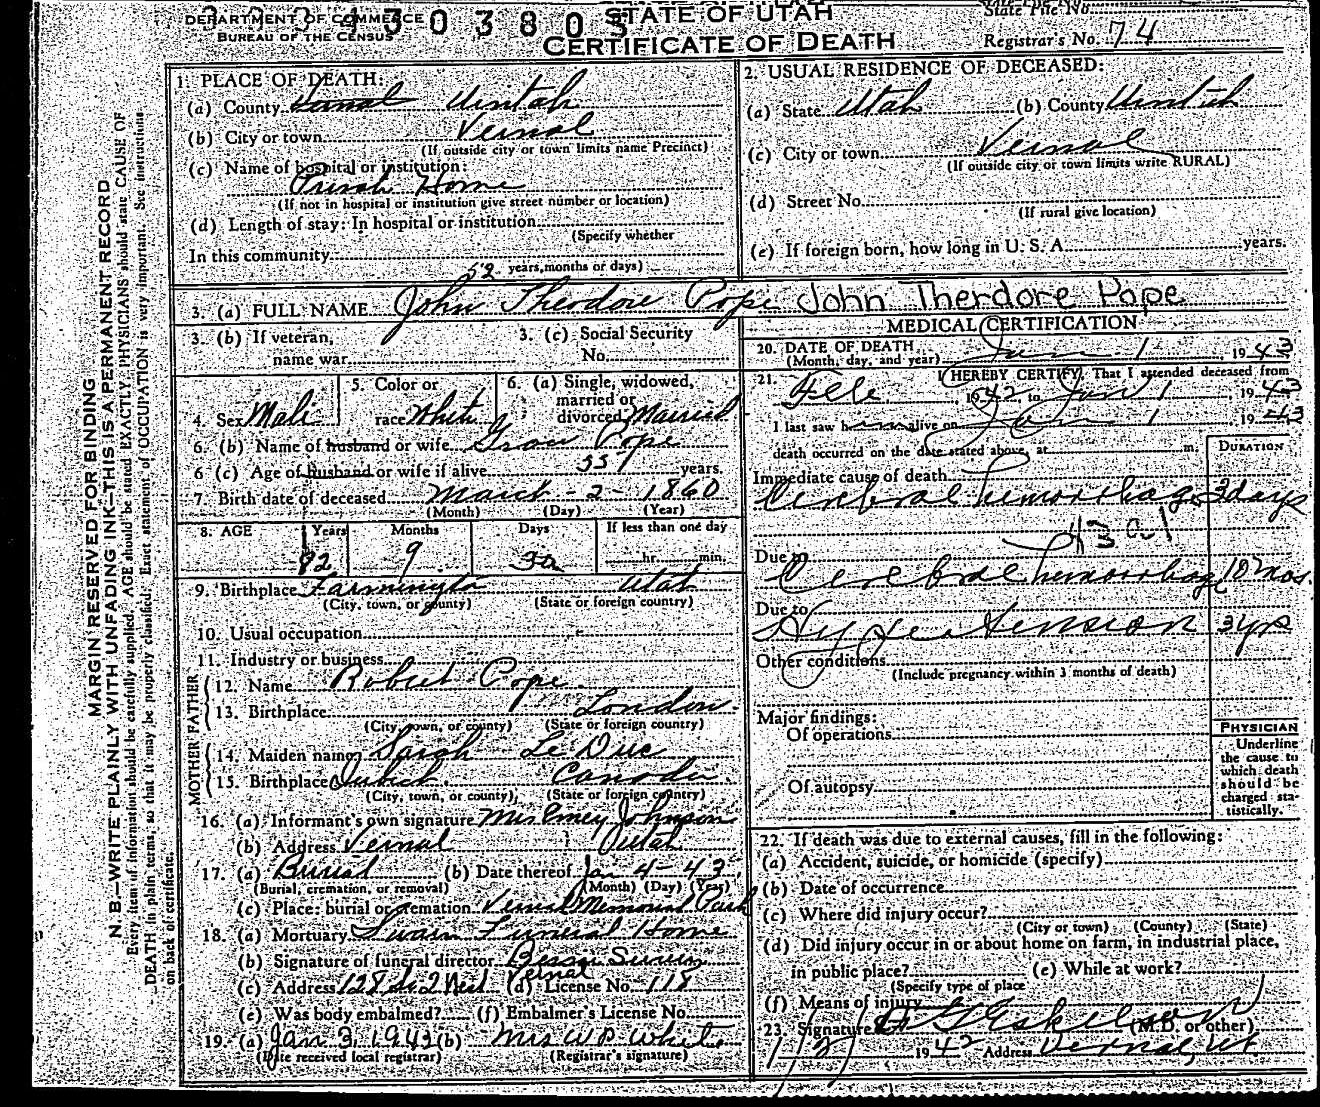 DEPARTMENT OF COMMERCE
BUREAU OF THE CENSUS
STATE OF UTAH
CERTIFICATE OF DEATH
State File No.
Registrar's No. 74
MARGIN RESERVED FOR BINDING
N. B.—WRITE PLAINLY WITH UNFADING INK—THIS IS A PERMANENT RECORD
Every item of information should be carefully supplied. AGE should be stated EXACTLY. PHYSICIANS should state CAUSE OF
DEATH in plain terms, so that it may be properly classified. Exact statement of OCCUPATION is very important. See instructions
on back of certificate.
1. PLACE OF DEATH:
(a) County Vernal Uintah
(b) City or town Vernal
(If outside city or town limits name Precinct)
(c) Name of hospital or institution:
Home
(If not in hospital or institution give street number or location)
(d) Length of stay: In hospital or institution
(Specify whether
In this community 52
years, months or days)
2. USUAL RESIDENCE OF DECEASED:
(a) State Utah (b) County Uintah
(c) City or town Vernal
(If outside city or town limits write RURAL)
(d) Street No.
(If rural give location)
(e) If foreign born, how long in U. S. A. years.
3. (a) FULL NAME John Theodore Pope John Therdore Pope
3. (b) If veteran,
name war
3. (c) Social Security
No.
4. Sex Male
5. Color or
race White
6. (a) Single, widowed,
married or
divorced Married
6. (b) Name of husband or wife Pope
6 (c) Age of husband or wife if alive 55 years.
7. Birth date of deceased March - 2 - 1860
(Month) (Day) (Year)
8. AGE Years Months Days If less than one day
82 9 30 hr. min.
9. Birthplace Farmington Utah
(City, town, or county) (State or foreign country)
10. Usual occupation
11. Industry or business
FATHER
12. Name Robert Pope
13. Birthplace London
(City, town, or county) (State or foreign country)
MOTHER
14. Maiden name Sarah Le Duc
15. Birthplace Canada
(City, town, or county) (State or foreign country)
16. (a) Informant's own signature Mrs Johnson
(b) Address Vernal Utah
17. (a) Burial (b) Date thereof Jan 4-43
(Burial, cremation, or removal) (Month) (Day) (Year)
(c) Place: burial or cremation Vernal Memorial Park
18. (a) Mortuary Swain Funeral Home
(b) Signature of funeral director
(c) Address Vernal (d) License No. 118
(e) Was body embalmed? (f) Embalmer's License No.
19. (a) Jan 3, 1943 (b) Mrs W P White
(Date received local registrar) (Registrar's signature)
MEDICAL CERTIFICATION
20. DATE OF DEATH
(Month, day, and year) Jan 1, 1943
21. I HEREBY CERTIFY, That I attended deceased from
1942 to Jan 1, 1943
I last saw him alive on Jan 1 1943
death occurred on the date stated above, at m.
DURATION
Immediate cause of death
Cerebral hemorrhage 2 days
Due to
Cerebral hemorrhage 10 mos.
Due to
Hypertension 3 yrs
Other conditions
(Include pregnancy within 3 months of death)
Major findings:
Of operations
Of autopsy
PHYSICIAN
Underline
the cause to
which death
should be
charged sta-
tistically.
22. If death was due to external causes, fill in the following:
(a) Accident, suicide, or homicide (specify)
(b) Date of occurrence
(c) Where did injury occur?
(City or town) (County) (State)
(d) Did injury occur in or about home on farm, in industrial place,
in public place? (e) While at work?
(Specify type of place
(f) Means of injury
23. Signature Eskelson (M.D. or other)
1/2/ 1942 Address Vernal, Ut